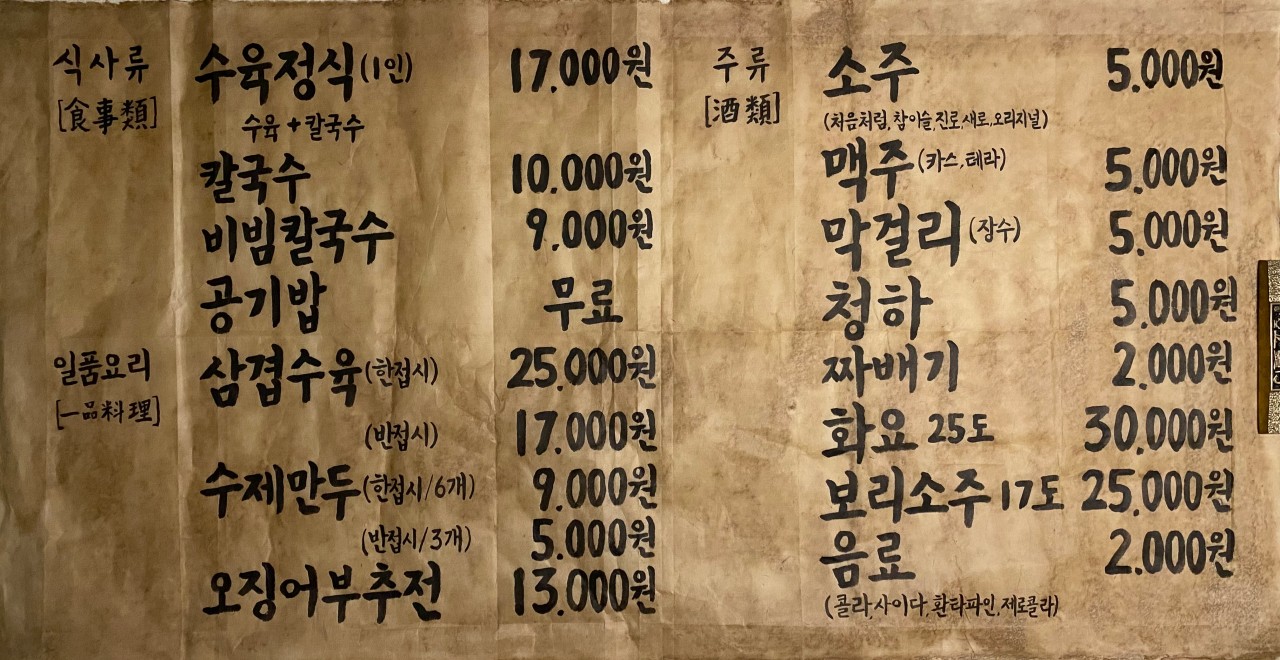 식사류
[食事類]
수육정식(1인) 17.000원
수육+칼국수
칼국수 10.000원
비빔칼국수 9.000원
공기밥 무료
일품요리
[一品料理]
삼겹수육(한접시) 25.000원
(반접시) 17.000원
수제만두(한접시/6개) 9.000원
(반접시/3개) 5.000원
오징어부추전 13.000원
주류
[酒類]
소주 5.000원
(처음처럼,참이슬,진로,새로,오리지널)
맥주(카스,테라) 5.000원
막걸리(장수) 5.000원
청하 5.000원
짜배기 2.000원
화요 25도 30.000원
보리소주 17도 25.000원
음료 2.000원
(콜라,사이다,환타파인,제로콜라)